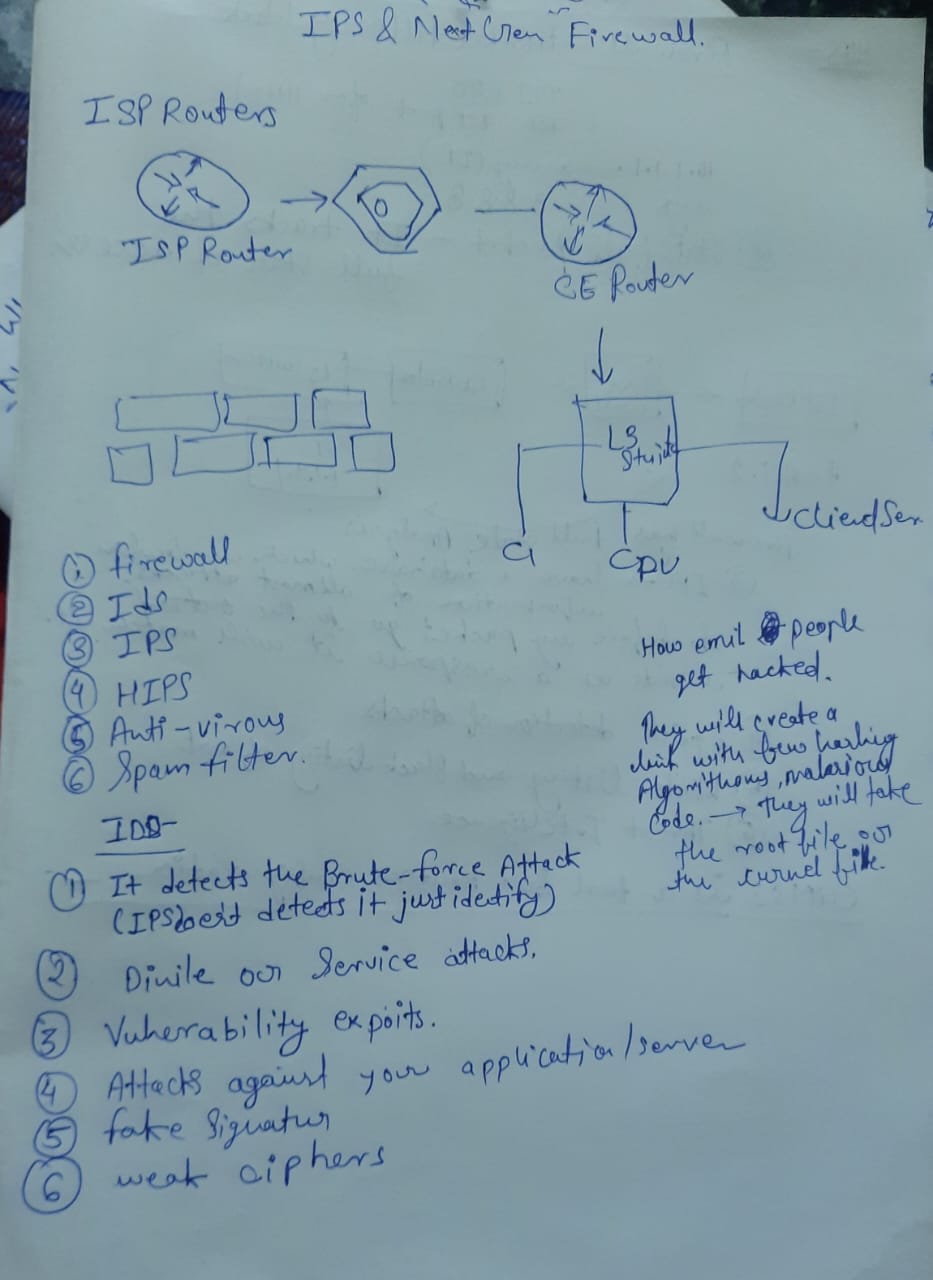 IPS & Next Gen Firewall.
ISP Routers
ISP Router
CE Router
L3
C1
CPU.
① firewall
② Ids
③ IPS
④ HIPS
⑤ Anti-virous
⑥ Spam filter.
How emil people
get hacked.
They will create a
link with few hashing
Algorithoms, malarious
Code. → They will take
the root file or
the curnel file.
IDS-
① It detects the Brute-force Attack
(IPS detects it just identify)
② Dinile our Service attacks.
③ Vulnerability expoits.
④ Attacks against your application/server
⑤ fake Signatur
⑥ weak ciphers